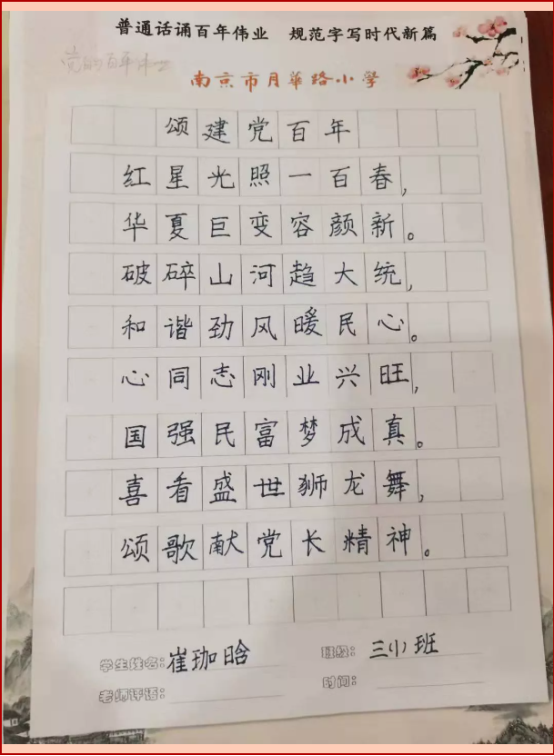 普通话诵百年伟业 规范字写时代新篇
党的百年
南京市月华路小学
颂建党百年
红星光照一百春,
华夏巨变容颜新。
破碎山河趋大统,
和谐劲风暖民心。
心同志刚业兴旺,
国强民富梦成真。
喜看盛世狮龙舞,
颂歌献党长精神。
学生姓名:崔珈晗 班级:三(1)班
老师评语: 时间: